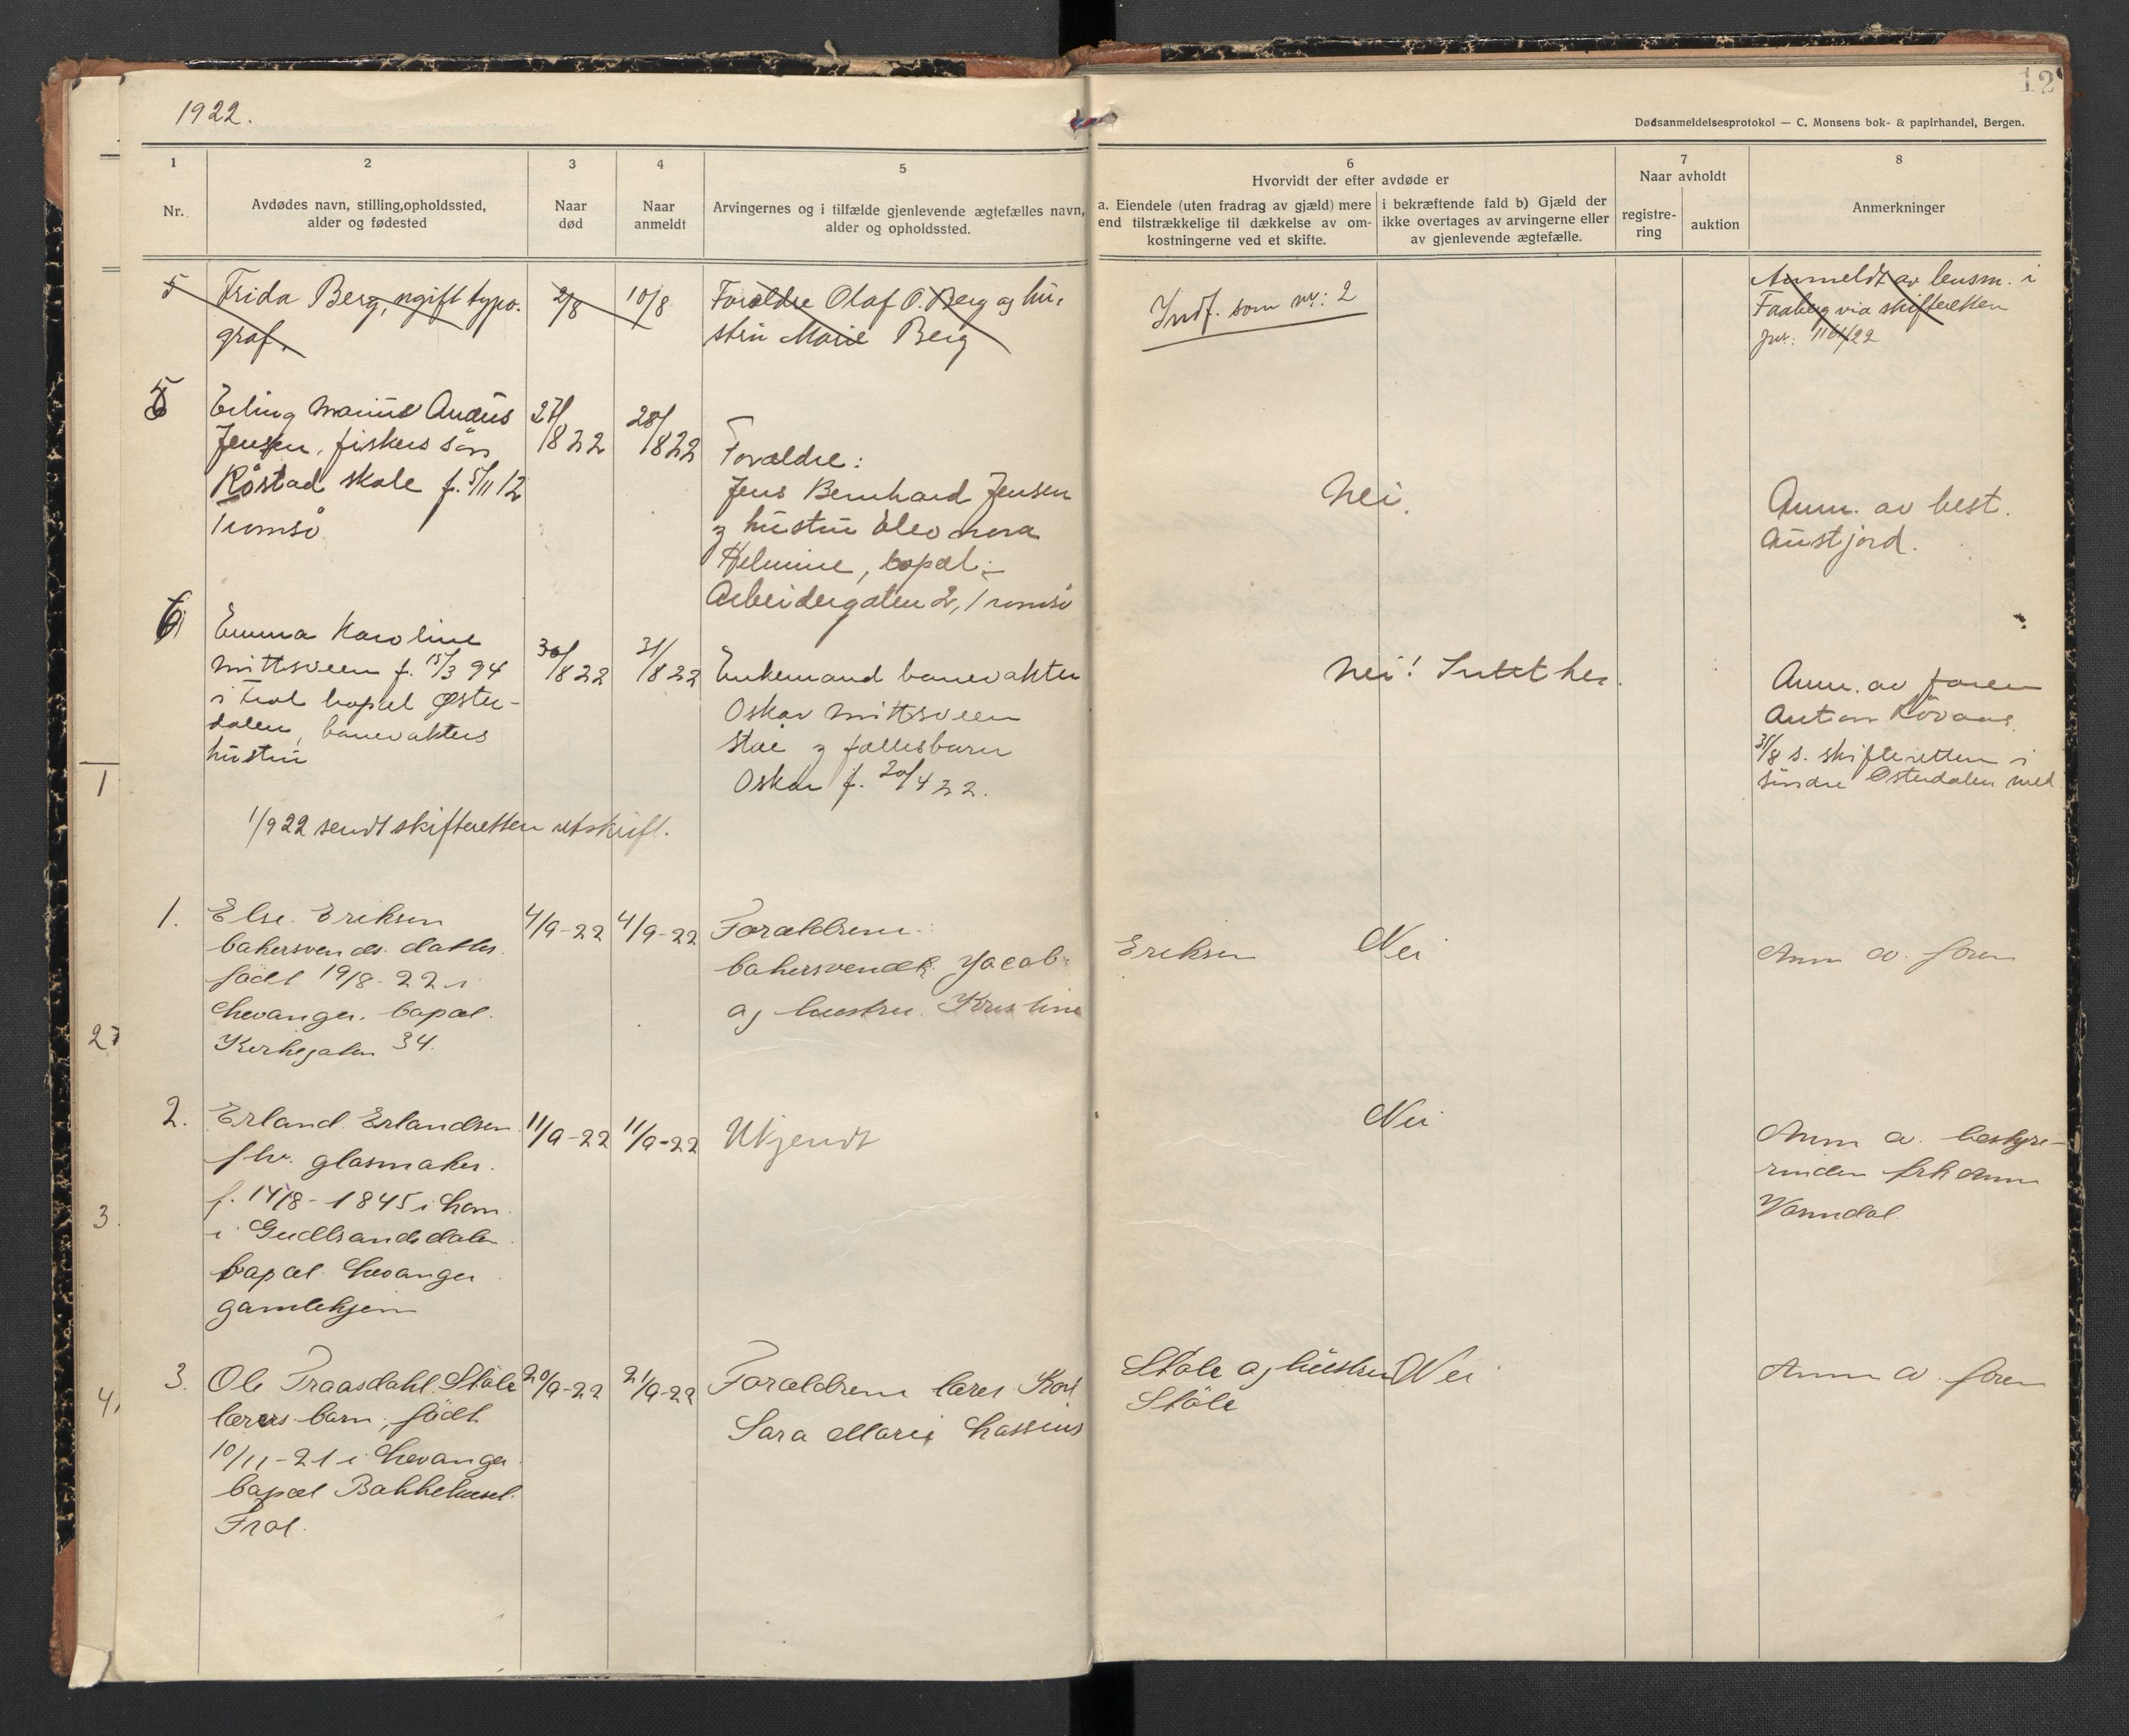 1922.
12
Dødsanmeldelsesprotokol — C. Monsens bok- & papirhandel, Bergen.
1
Nr.
2
Avdødes navn, stilling, opholdssted,
alder og fødested
3
Naar
død
4
Naar
anmeldt
5
Arvingernes og i tilfælde gjenlevende ægtefælles navn,
alder og opholdssted.
6
Hvorvidt der efter avdøde er
a. Eiendele (uten fradrag av gjæld) mere
end tilstrækkelige til dækkelse av om-
kostningerne ved et skifte.
i bekræftende fald b) Gjæld der
ikke overtages av arvingerne eller
av gjenlevende ægtefælle.
7
Naar avholdt
registre-
ring
auktion
8
Anmerkninger
5
Frida Berg, ugift typo-
graf.
2/8
10/8
Forældre Olaf O. Berg og hu-
stru Marie Berg
Indf. som nr: 2
Anmeldt av lensm. i
Faaberg via skifteretten
5
Erling Marius
Jensen, fiskers søn
Röstad skole f. 5/11 12
Tromsö
27/8 22
28/8 22
Forældre:
Jens Bernhard Jensen
og hustru Eleonora
Helmine, bopæl:
Arbeidergaten 2, Tromsö
Nei.
Anm. av best.
Austjord.
6
Emma Karoline
Mittsveen f. 15/3 94
i Frol bopæl Øster-
dalen, banevakters
hustru
30/8 22
31/8 22
Enkemand banevakter
Oskar Mittsveen
Stai og fællesbarn
Oskar f. 20/4 22.
Nei! Intet her.
Anm. av faren
Anton
31/8 s. skifteretten i
søndre Østerdalen med
1/9 22 sendt skifteretten utskrift.
1.
Else Eriksen
bakersvends datter
född 19/8-22 i
Levanger, bopæl.
Kirkegaten 34.
4/9-22
4/9-22
Forældrene:
bakersvend Jacob
og hustru Kristine
Eriksen
Nei
Anm av. faren
2.
Erland Erlandsen
fhv. glasmaker.
f. 14/8-1845 i Lom
i Gudbrandsdalen
bopæl Levanger
gamlehjem
11/9-22
11/9-22
Ukjendt
Nei
Anm av. bestyre-
rinden frk Anna
Vanndal
3.
Ole Traasdahl Støle
lærers barn, född
10/11-21 i Levanger
bopæl Bakkehuset
Frol.
20/9-22
21/9-22
Forældrene lærer Karl
Sara Marie Lassius
Støle og hustru
Støle
Nei
Anm av. faren
1
2
3.
4.